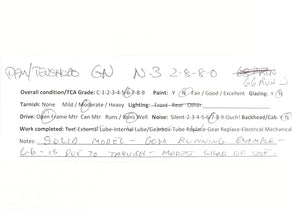 PFM/TENSHODO GN N-3 2-8-8-0
GGRUN
Overall condition/TCA Grade: C-1-2-3-4-5-6-7-8-9 Paint: Y N Fair / Good / Excellent Glazing: Y N
Tarnish: None Mild / Moderate / Heavy Lighting: Front Rear Other
Drive: Open Frame Mtr Can Mtr Runs / Runs Well Noise: Silent-1-2-3-4-5-6-7-8-9-Ouch! Backhead/Cab: Y N
Work completed: Test-External Lube-Internal Lube/Gearbox-Tube Replace-Gear Replace-Electrical-Mechanical
Notes: SOLID MODEL - GOOD RUNNING EXAMPLE -
C-6 IS DUE TO TARNISH - MODEST SIGNS OF USE.